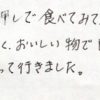 押しで食べてみて
く、おいしい物で
って行きました。